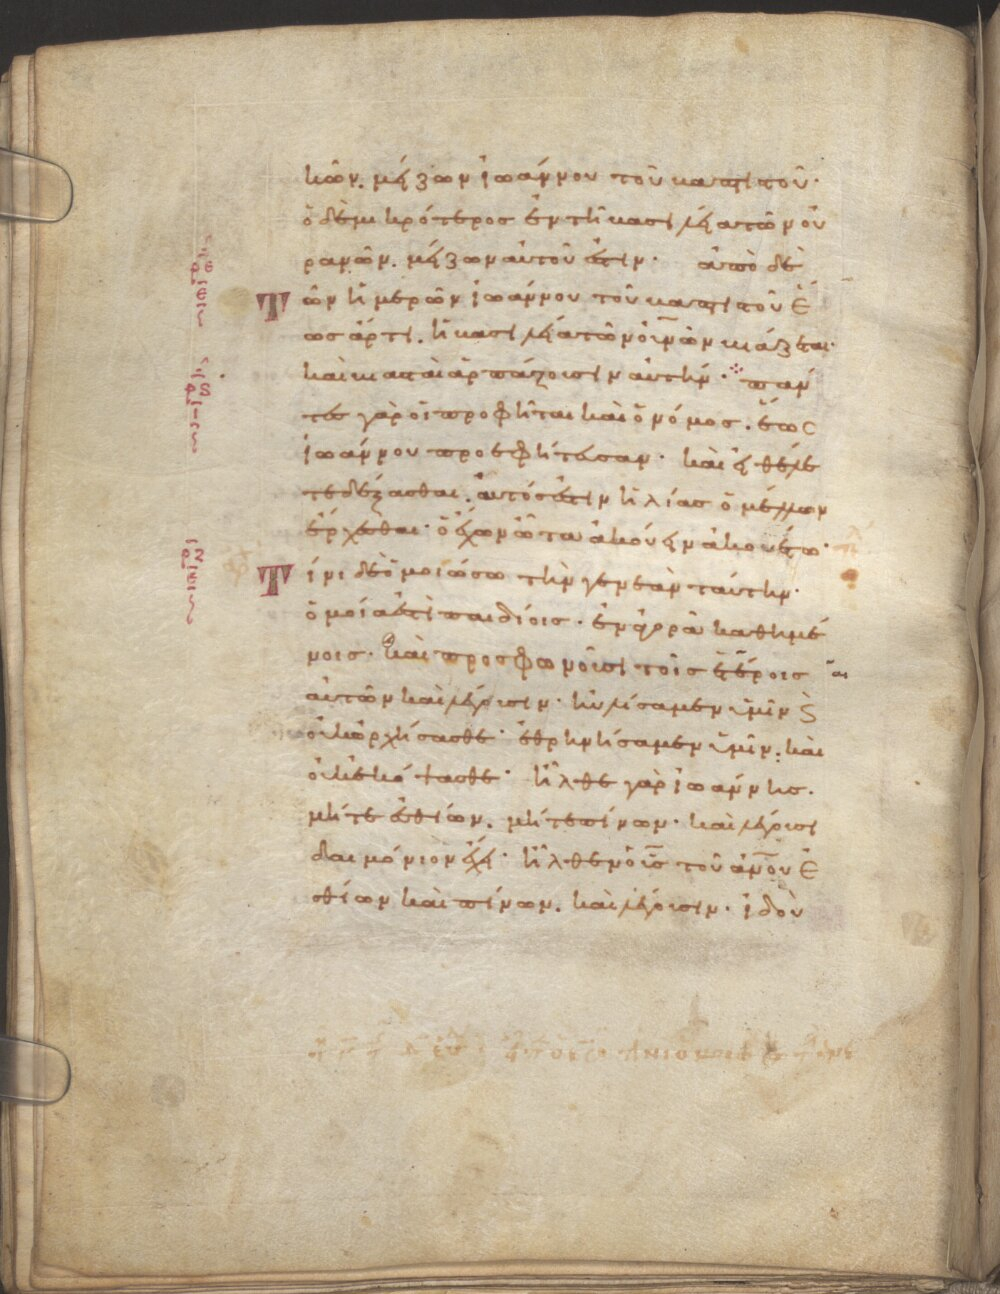 κῶν. μείζων ἰωάννου τοῦ βαπτιστοῦ·
ὁ δὲ μικρότερος ἐν τῆ βασιλεία τῶν οὐ
ρανῶν. μείζων αὐτοῦ ἐστιν· ἀπὸ δὲ
Τῶν ἡμερῶν ἰωάννου τοῦ βαπτιστοῦ ἕ
ως ἄρτι. ἡ βασιλεία τῶν οὐνῶν βιάζεται·
καὶ βιασταὶ ἁρπάζουσιν αὐτήν· πάν
τες γὰρ οἱ προφῆται καὶ ὁ νόμος. ἕως
ἰωάννου προεφήτευσαν· καὶ εἰ θέλε
τε δέξασθαι. αὐτός ἐστιν ἠλίας ὁ μέλλων
ἔρχεσθαι· ὁ ἔχων ὦτα ἀκούειν ἀκουέτω·
Τίνι δὲ ὁμοιώσω τὴν γενεὰν ταύτην·
ὁμοία ἐστὶ παιδίοις. ἐν ἀγορᾶ καθημέ
νοις· καὶ προσφωνοῦσι τοῖς ἑτέροις
αὐτῶν καὶ λέγουσιν· ηὐλήσαμεν ὑμῖν ϗ
οὐκ ὠρχήσασθε· ἐθρηνήσαμεν ὑμῖν. καὶ
οὐκ ἐκόψασθε· ἦλθε γὰρ ἰωάννης.
μήτε ἐσθίων. μήτε πίνων· καὶ λέγουσι
δαιμόνιον ἔχει· ἦλθεν ὁ υἱς τοῦ ἀνου ἐ
σθίων καὶ πίνων. καὶ λέγουσιν· ἰδοὺ